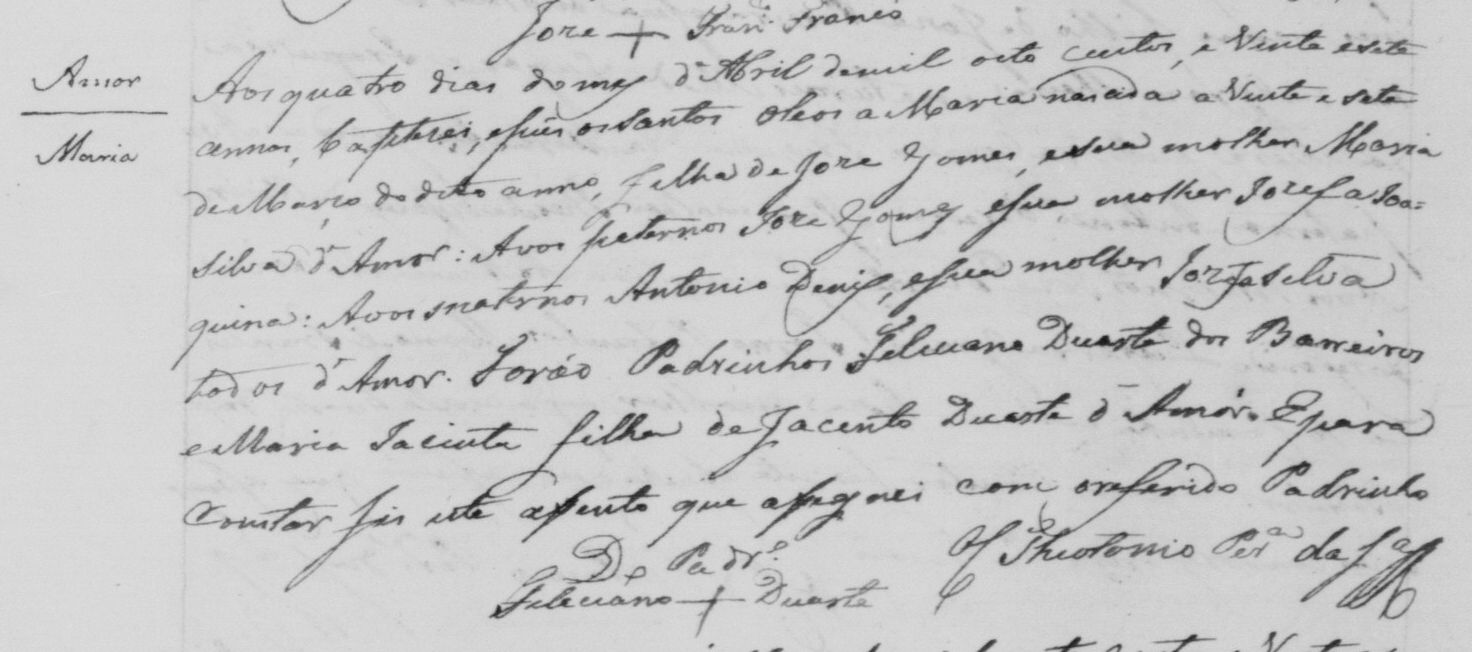 Joze + Fran.co Franco
Amor
Maria
Aos quatro dias do mez d'Abril de mil oito centos, e Vinte e sete
annos, baptizei, e puis os santos Oleos a Maria nascida a Vinte e sete
de Março do dito anno, filha de Joze Gomes, e sua molher Maria
silva d'Amor: Avos paternos Joze Gomes e sua molher Jozefa Joa=
quina: Avos maternos Antonio Deniz, e sua molher Jozefa silva
todos d'Amor. Forão Padrinhos Feleciano Duarte dos Barreiros
e Maria Jacinta filha de Jacinto Duarte d'Amor. E para
constar fis este assento que assegnei com o referido Padrinho
De Padr.o
O Theotonio Per.a da S.a
Feleciano + Duarte